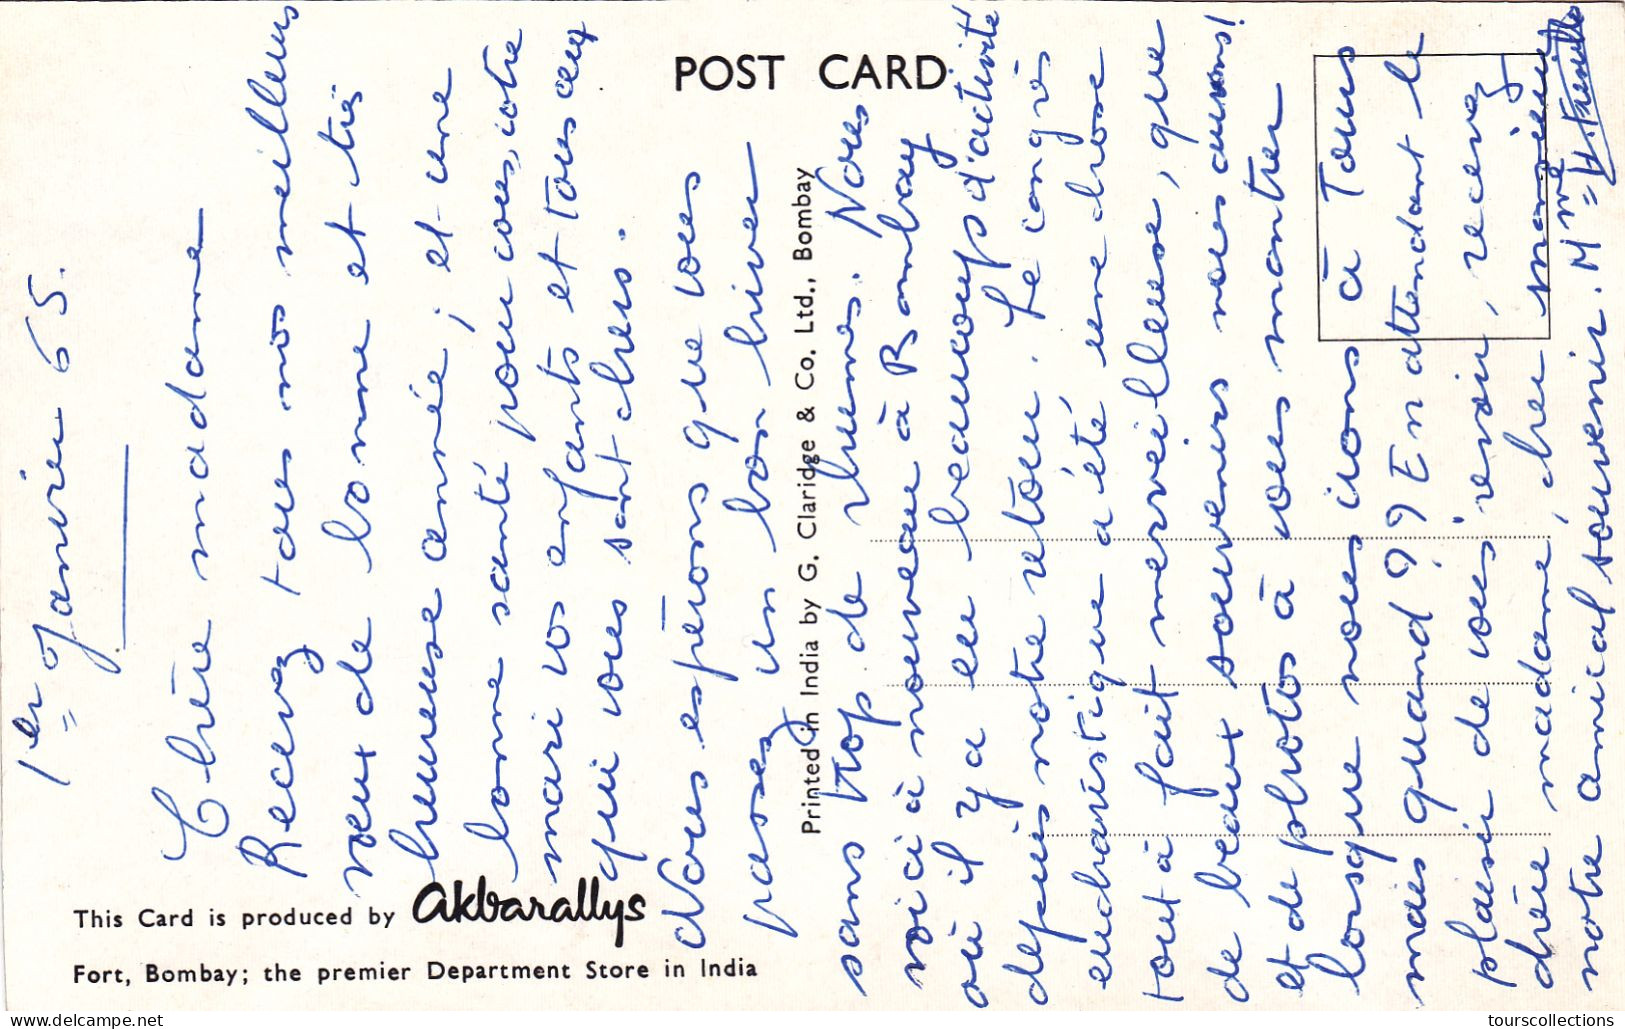 POST CARD
1er Janvier 65.
Chère madame
Recevez tous nos meilleurs
vœux de bonne et très
heureuse année ; et une
bonne santé pour vous, votre
mari vos enfants et tous ceux
qui vous sont chers.
Nous espérons que vous
passez un bon hiver
Printed in India by G. Claridge & Co. Ltd., Bombay
sans trop de rhumes. Nous
voici à nouveau à Bombay
où il y a eu beaucoup d'activité
depuis notre retour. Le congrès
eucharistique a été une chose
tout à fait merveilleuse, que
de beaux souvenirs nous avons!
et de photos à vous montrer
lorsque nous irons à Tours
mais quand ?? En attendant le
plaisir de vous revoir, recevez
chère madame, cher monsieur
notre amical souvenir. Mme
This Card is produced by Akbarallys
Fort, Bombay; the premier Department Store in India
delcampe.net
tourscollections